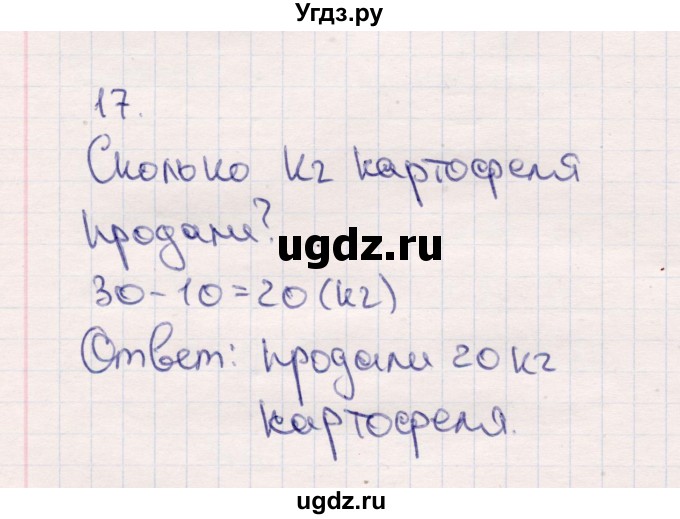 Угдз.ру
17.
Сколько кг картофеля
продали?
ugdz.ru
30-10=20(кг)
Ответ: продали 20 кг
картофеля.
ugdz.ru